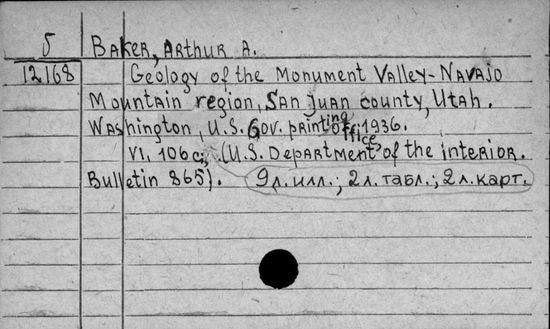 5 Baker, Arthur A.
12168 Geology of the Monument Valley-Navajo
Mountain region, San Juan county, Utah.
Washington, U.S. Gov. printing office, 1936.
VI, 106 c., (U.S. Department of the interior.
Bulletin 865). 9 л. илл.; 2 л. табл.; 2 л. карт.